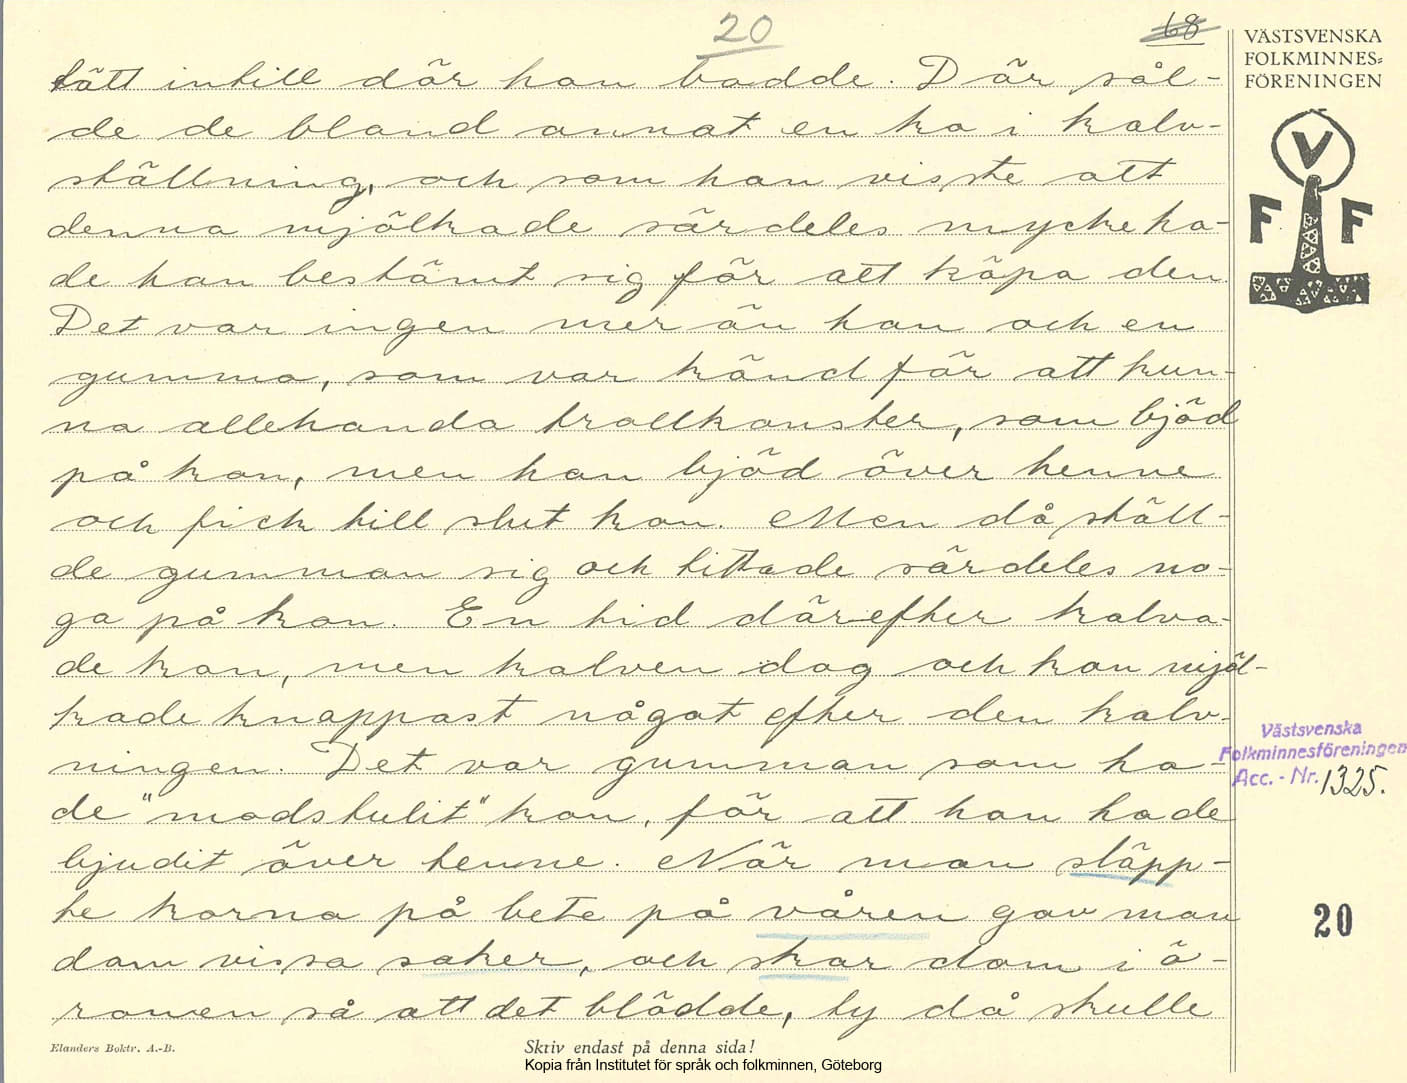 20
68
VÄSTSVENSKA
FOLKMINNES=
FÖRENINGEN
V
F F
tätt intill där han bodde. Där sål-
de de bland annat en ko i kalv-
ställning, och som han visste att
denna mjölkade särdeles mycke ha-
de han bestämt sig för att köpa den.
Det var ingen mer än han och en
gumma, som var känd för att kun-
na allehanda trollkonster, som bjöd
på kon, men han bjöd över henne
och fick till slut kon. Men då ställ-
de gumman sig och tittade särdeles no-
ga på kon. En tid därefter kalva-
de kon, men kalven dog och kon mjöl-
kade knappast något efter den kalv-
ningen. Det var gumman som ha-
de "modstulit" kon, för att han hade
bjudit över henne. När man släpp-
te korna på bete på våren gav man
dom vissa saker, och skar dom i ö-
ronen så att det blödde, ty då skulle
Västsvenska
Folkminnesföreningen
Acc. - Nr. 1325.
20
Elanders Boktr. A.-B.
Skriv endast på denna sida!
Kopia från Institutet för språk och folkminnen, Göteborg